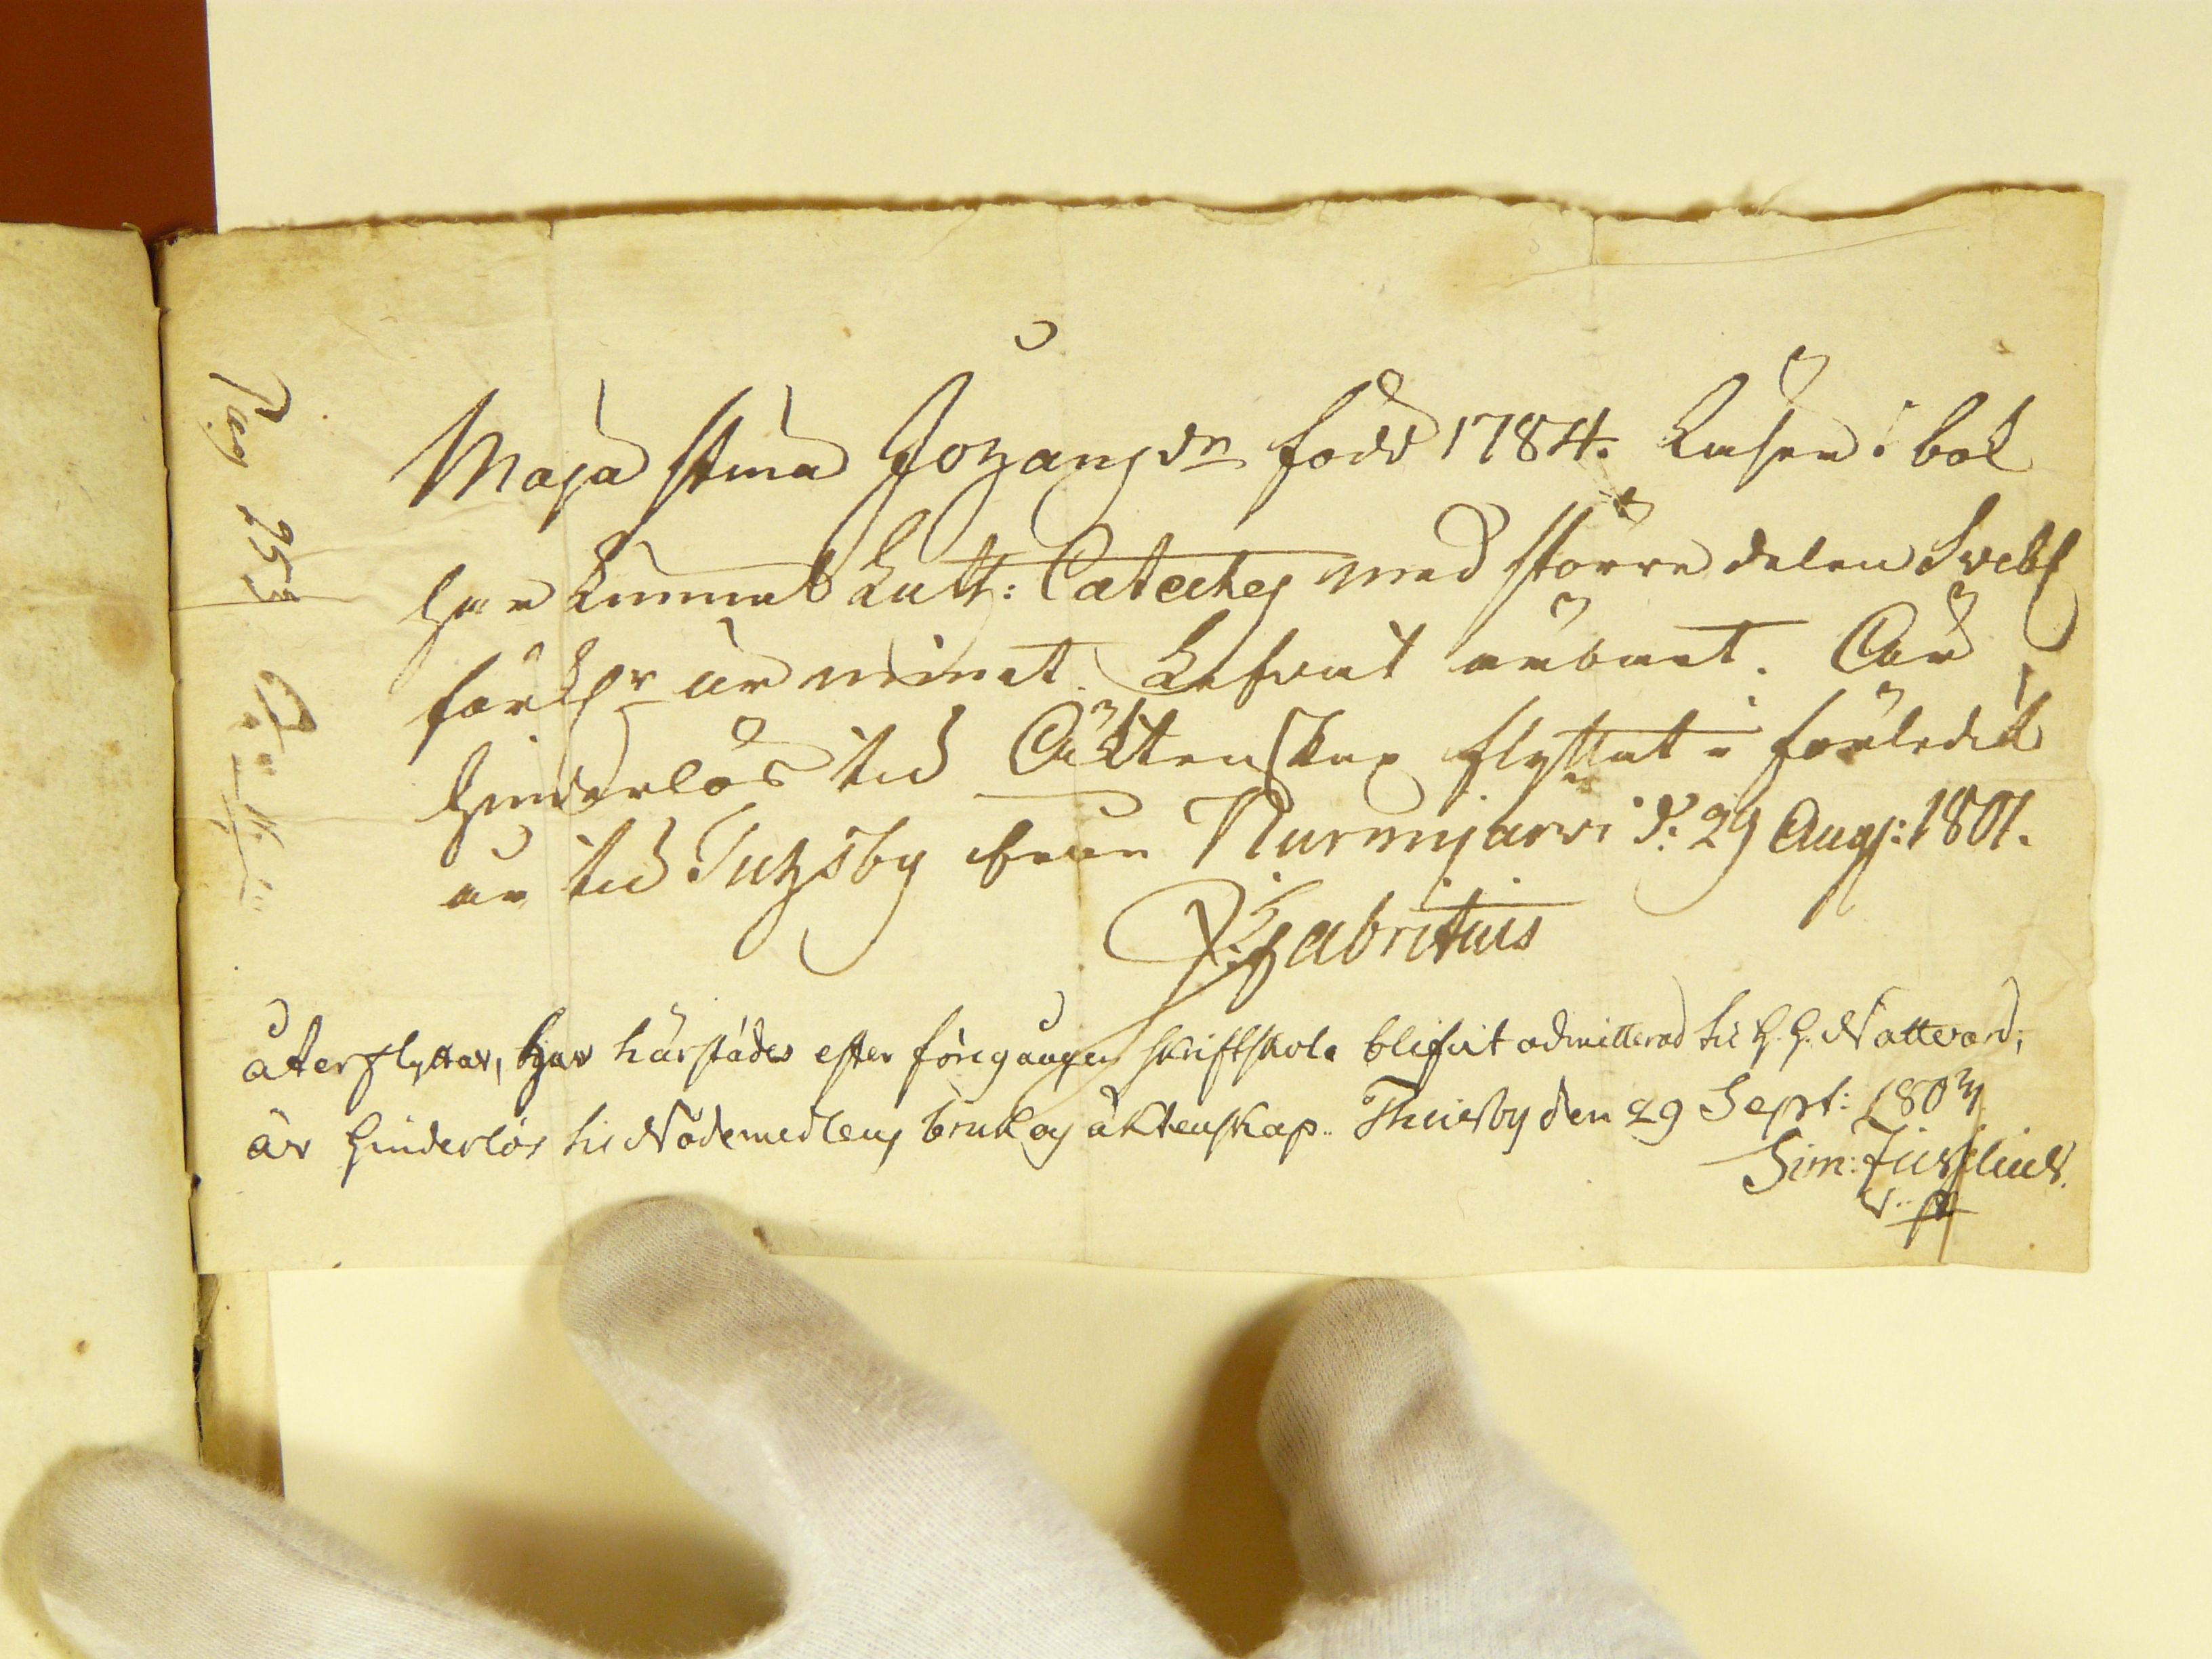 Maja Stina Johansdr född 1784. Läser i bok
har kunnat Luth: Cateches med större delen Sveb:
förkl:r ur minnet. Lefvat ärbart. Är
hinderlös till Äktenskap flyttat i förledit
år till Tuhsby ifrån Nurmijärvi d: 29 Aug: 1801.
Fabritius
återflyttar, har härstädes efter föregången skriftskola blifvit admitterad til H. H. Nattvard;
är hinderlös til Nådemedlens bruk og äktenskap. Thusby den 29 Sept: 1803.
Sim:
Pag